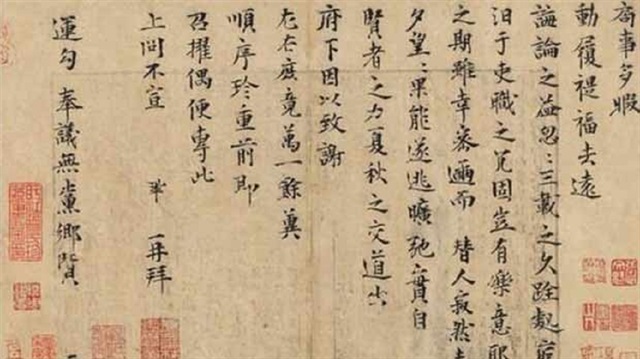 局事多暇
動履禔福去遠
誨論之益忽〻三載之久跧處
汨于吏職之冗固豈有樂意耶
之期雖幸密邇而替人寂然
夕望〻果能遂逃曠弛實自
賢者之力夏秋之交道出
府下因以致謝
左右庶竟萬一餘冀
順序珍重前即
召擢偶便專此
上問不宣 鞏 再拜
運勾 奉議無黨鄉賢